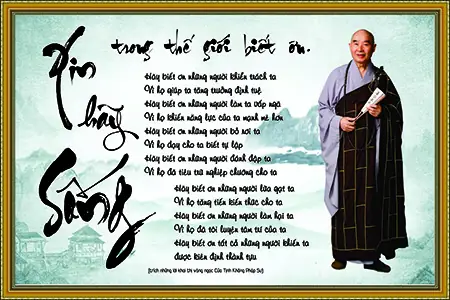 Xin hãy Sống
trong thế giới biết ơn.
Hãy biết ơn những người khiển trách ta
Vì họ giúp ta tăng trưởng định tuệ
Hãy biết ơn những người làm ta vấp ngã
Vì họ khiến năng lực của ta mạnh mẽ hơn
Hãy biết ơn những người bỏ rơi ta
Vì họ dạy cho ta biết tự lập
Hãy biết ơn những người đánh đập ta
Vì họ đã tiêu trừ nghiệp chướng cho ta
Hãy biết ơn những người lừa gạt ta
Vì họ tăng tiến kiến thức cho ta
Hãy biết ơn những người làm hại ta
Vì họ đã tôi luyện tâm tư của ta
Hãy biết ơn tất cả những người khiến ta
được kiên định thành tựu
(trích những lời khai thị vàng ngọc Của Tịnh Không Pháp Sư)